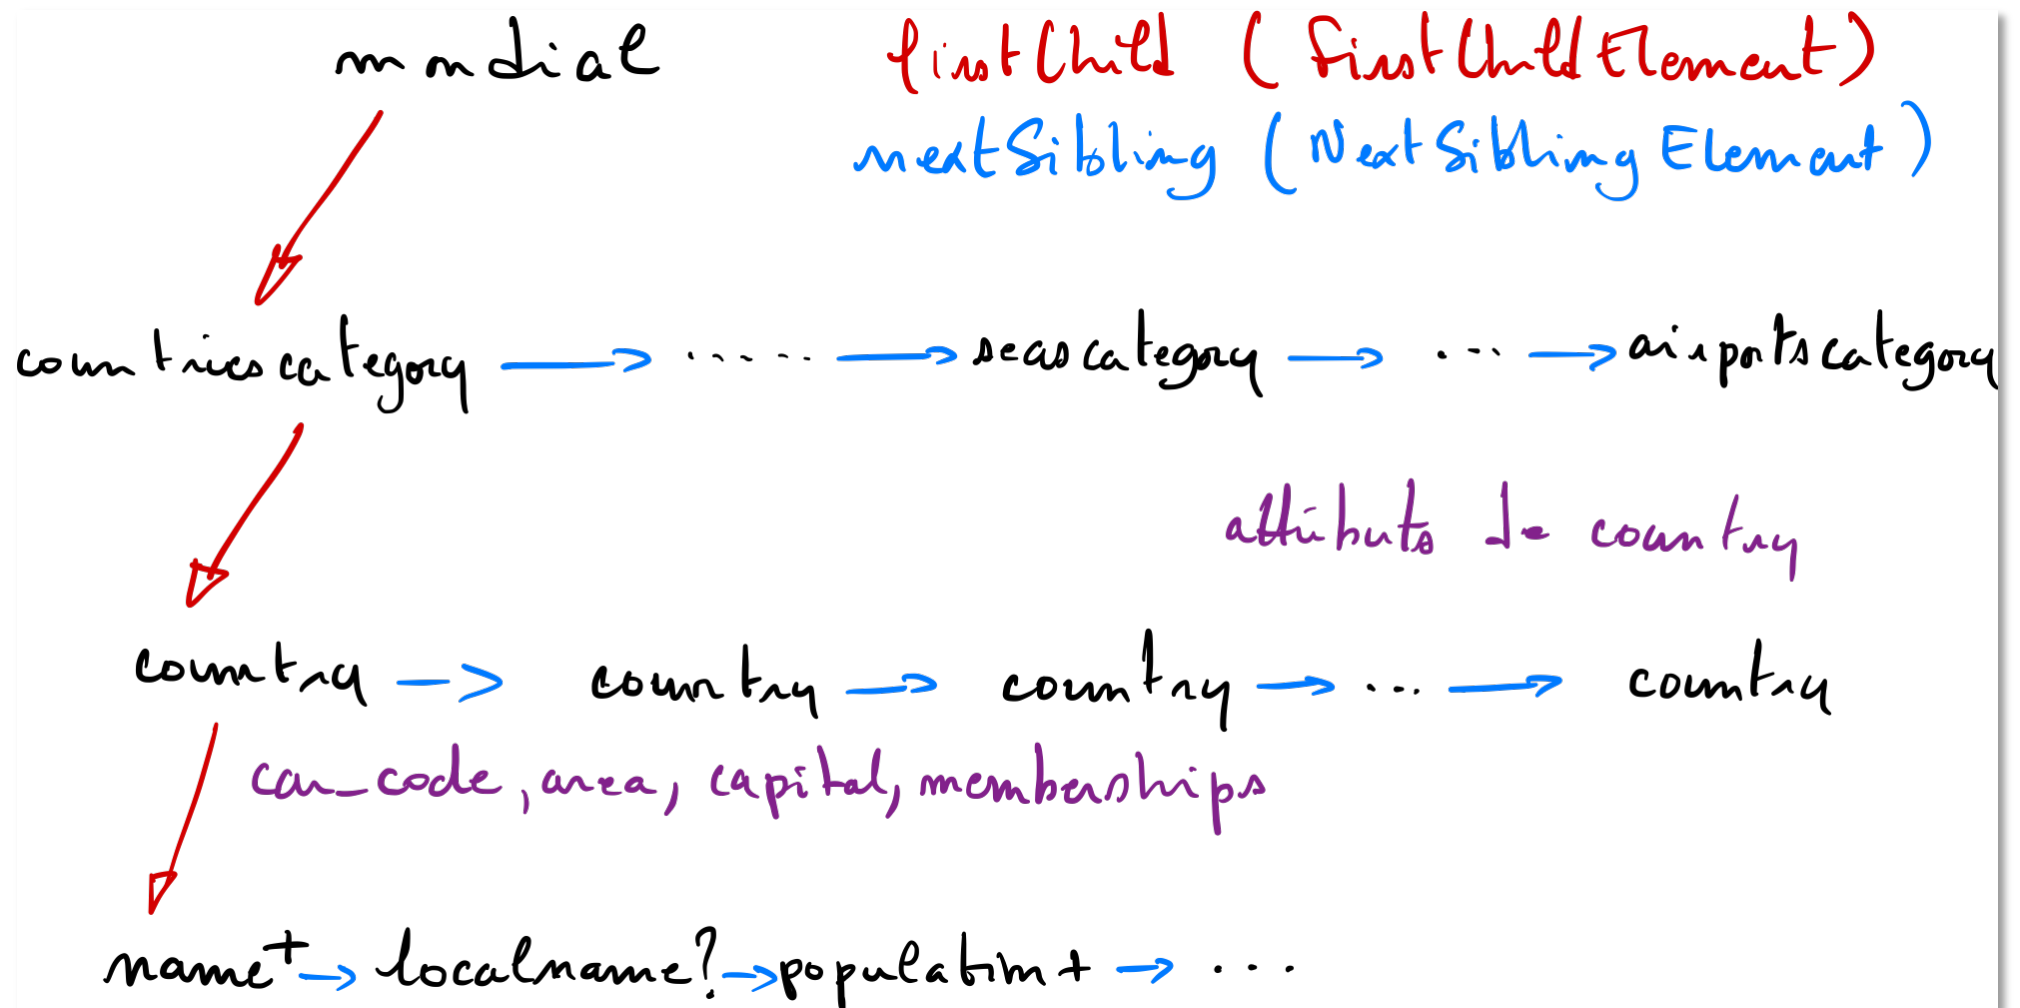 mondial firstChild (FirstChildElement)
nextSibling (NextSiblingElement)
countriescategory ..... seascategory ... airportscategory
attributs de country
country country country ... country
car_code, area, capital, memberships
name+ localname? population+ ...